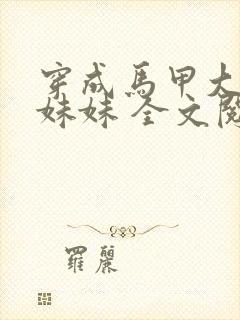 穿成馬甲大
妹妹 全文閱
羅麗